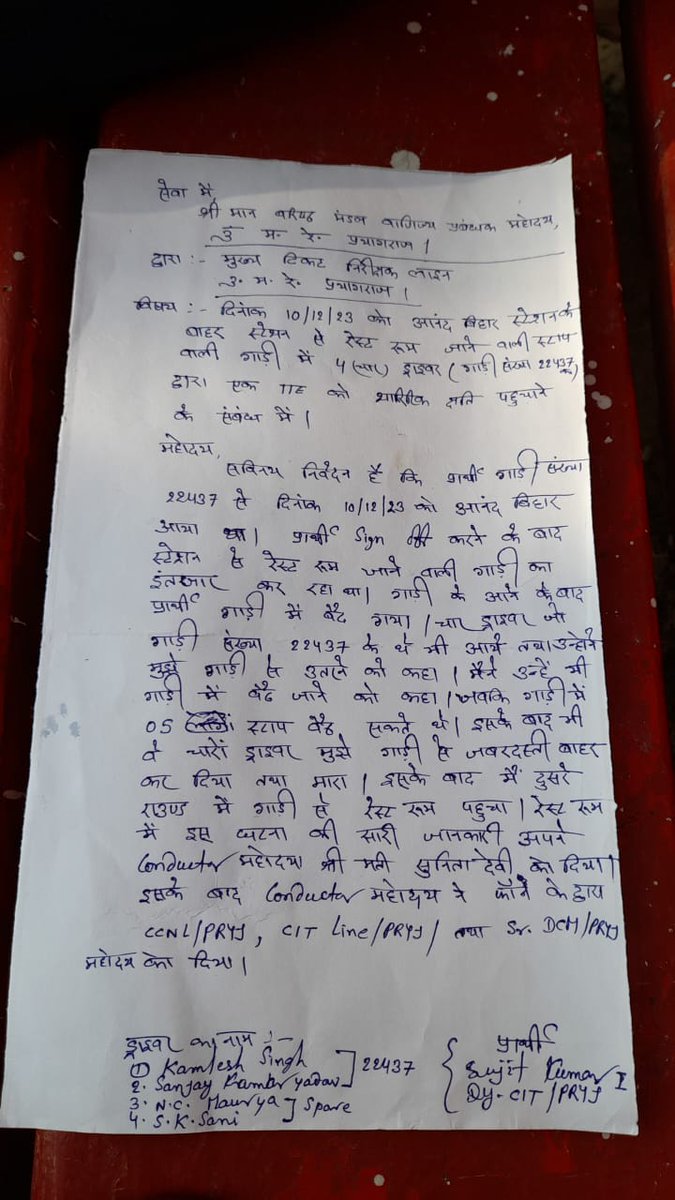 सेवा में,
श्री मान वरिष्ठ मंडल वाणिज्य प्रबंधक महोदय,
उ॰ म॰ रे॰ प्रयागराज।
द्वारा :- मुख्य टिकट निरीक्षक लाइन
उ. म. रे. प्रयागराज।
विषय :- दिनांक 10/12/23 को आनंद बिहार स्टेशन के
बाहर स्टेशन से रेस्ट रूम जाने वाली स्टाप
वाली गाड़ी में 4 (चार) ड्राइवर (गाड़ी संख्या 22437 के)
द्वारा एक TTE को शारिरिक क्षति पहुचाने
के संबंध में।
महोदय,
सविनय निवेदन है कि प्रार्थी गाड़ी संख्या
22437 से दिनांक 10/12/23 को आनंद बिहार
आया था। प्रार्थी Sign Off करने के बाद
स्टेशन से रेस्ट रूम जाने वाली गाड़ी का
इंतजार कर रहा था। गाड़ी के आने के बाद
प्रार्थी गाड़ी में बैठ गया। चार ड्राइवर जो
गाड़ी संख्या 22437 के थे भी आये तथा उन्होने
मुझे गाड़ी से उतरने को कहा। मैंने उन्हें भी
गाड़ी में बैठ जाने को कहा। जबकि गाड़ी में
05 स्टाप बैठ सकते थे। इसके बाद भी
वे चारों ड्राइवर मुझे गाड़ी से जबरदस्ती बाहर
कर दिया तथा मारा। इसके बाद मैं दुसरे
राउण्ड में गाड़ी से रेस्ट रूम पहुचा। रेस्ट रूम
में इस घटना की सारी जानकारी अपने
Conductor महोदया श्री मती सुनिता देवी को दिया।
इसके बाद Conductor महोदय ने फॉन के द्वारा
CCNL/PRYJ, CIT Line/PRYJ/ तथा Sr. DCM/PRYJ
महोदय को दिया।
ड्राइवर का नाम :-
① Kamlesh Singh
2. Sanjay Kumar yadav ] 22437
3. N.C. Maurya
4. S.K. Sani ] Spare
प्रार्थी
Sujit Kumar I
Dy. CIT/PRYJ